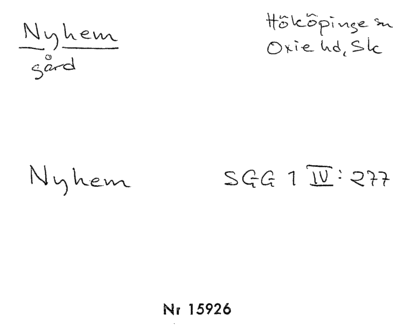 Nyhem
gård
Hököpinge sn
Oxie hd, Sk
Nyhem SGG 1 IV: 277
Nr 15926